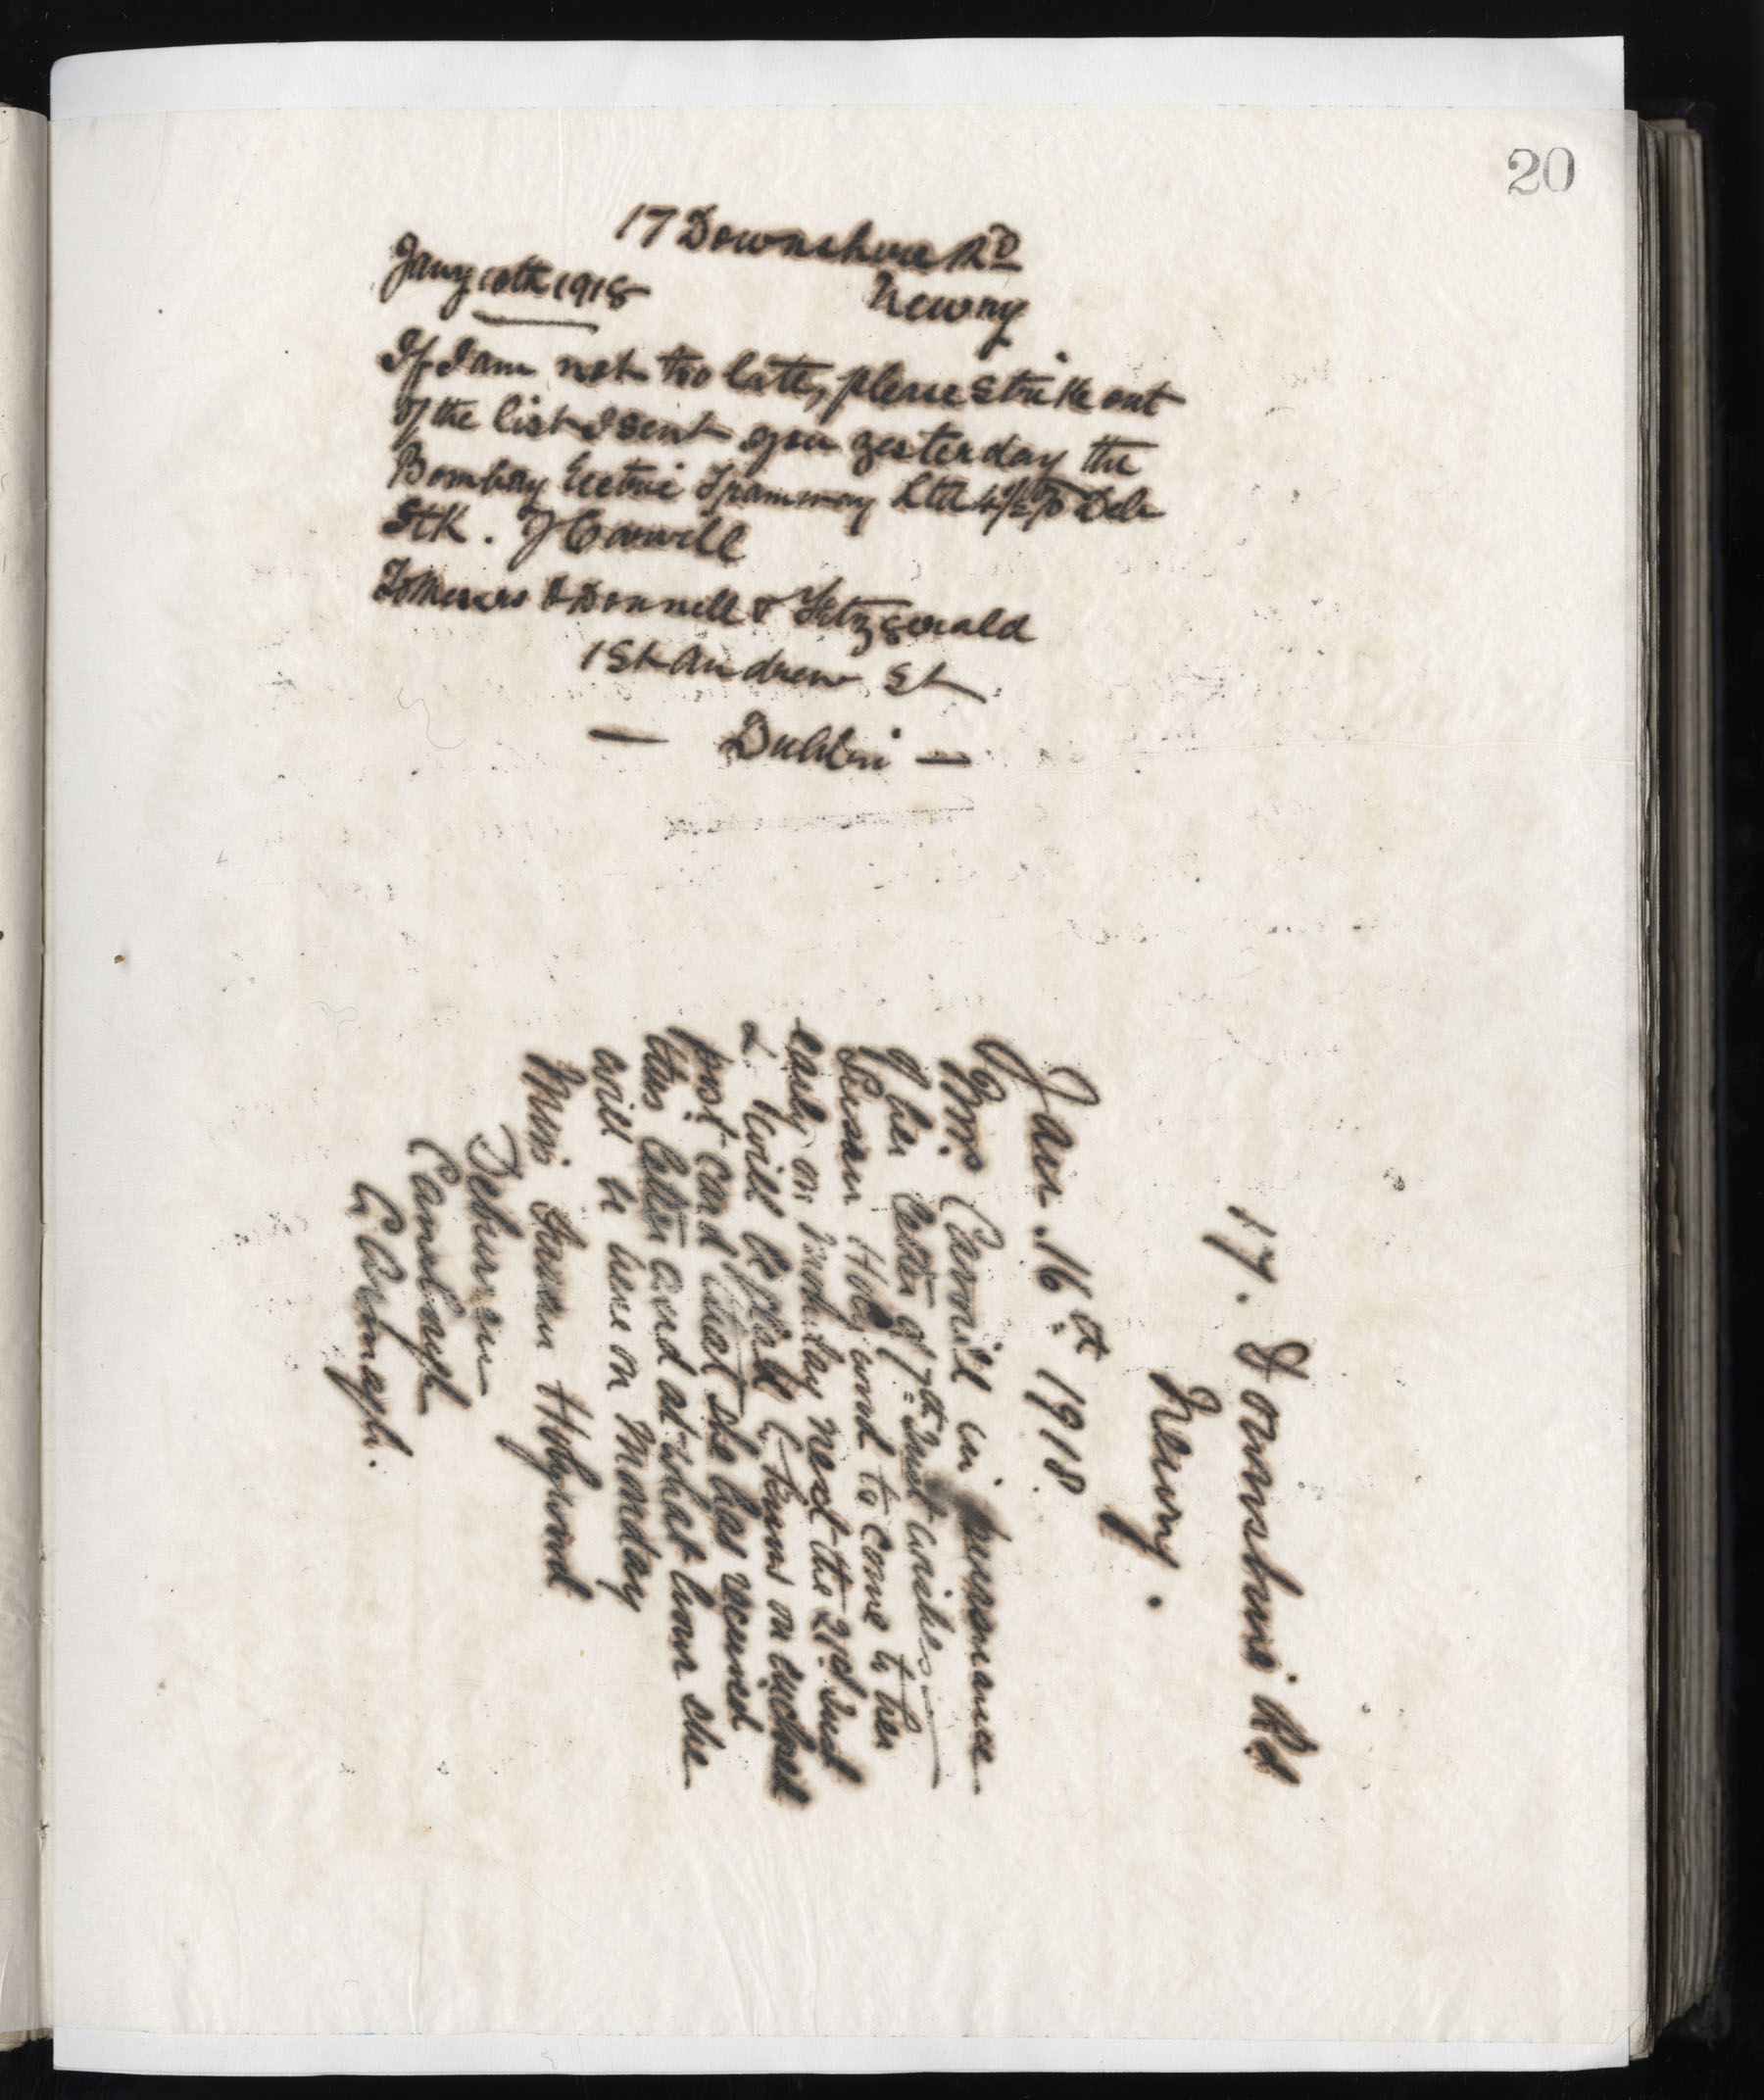 20
17 Downshire Rd
Jany 10th 1918 Newry
If I am not too late, please strike out
of the list I sent you yesterday the
Bombay Eectric Tramway Ltd 4½% Deb
Stk. J Carvill
To Messrs O Donnell & Fitzgerald
1 St Andrew St
— Dublin —
17. Downshire Rd
Newry.
Jan. 16th 1918.
Mrs Carvill in pursuance
of her letter of 7th Inst wishes
Susan Holywood to come to her
early on Monday next the 21st Inst
& will be glad if [she] returns on enclosed
post card that she has received
this letter and at what hour she
will be here on Monday
Miss Susan Holywood
Camlough
Co Armagh.